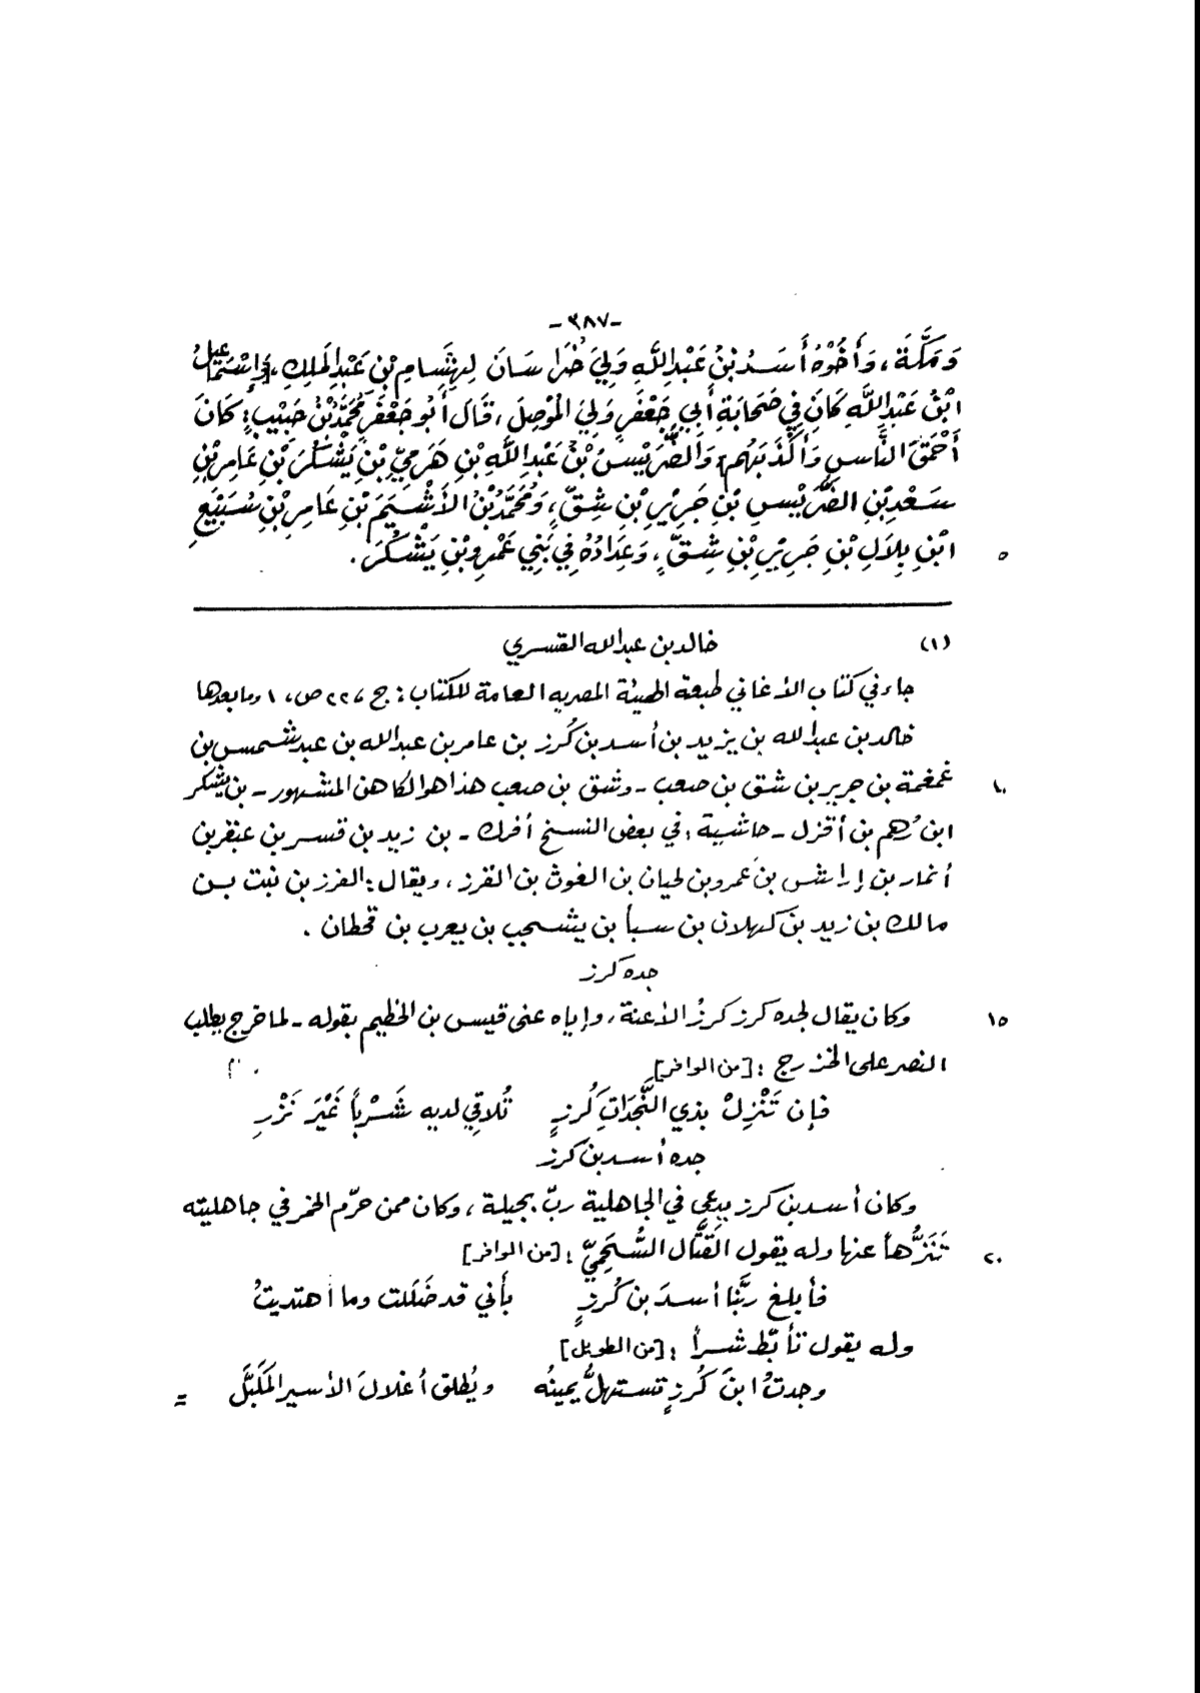 -٣٨٧-
وَمَكَّةَ، وَأَخُوْهُ أَسَدُ بْنُ عَبْدِ اللَّهِ وَلِيَ خُرَاسَانَ لِهِشَامِ بْنِ عَبْدِ المَلِكِ، وَإِسْمَاعِيلُ
ابْنُ عَبْدِ اللَّهِ كَانَ فِي صَحَابَةِ أَبِي جَعْفَرٍ وَلِيَ المَوْصِلَ، قَالَ أَبُو جَعْفَرٍ مُحَمَّدُ بْنُ حَبِيْبٍ: كَانَ
أَحْمَقَ النَّاسِ وَأَكْذَبَهُم، وَالضُّرَيْسُ بْنُ عَبْدِ اللَّهِ بْنِ هَرَمِيِّ بْنِ يَشْكُرَ بْنِ عَامِرِ بْنِ
سَعْدِ بْنِ الضُّرَيْسِ بْنِ جَرِيْرِ بْنِ شِقٍّ، وَمُحَمَّدُ بْنُ الأَشْيَمَ بْنِ عَامِرِ بْنِ سُبَيْعِ
ابْنِ بِلاَلِ بْنِ جَرِيْرِ بْنِ شِقٍّ، وَعِدَادُهُ فِي بَنِي عَمْرِو بْنِ يَشْكُرَ.
٥
(١) خالد بن عبد الله القسري
جاء في كتاب الأغاني طبعة الهيئة المصريه العامة للكتاب: ج ٢٢، ص، ١ وما بعدها
خالد بن عبد الله بن يزيد بن أسد بن كُرز بن عامر بن عبد الله بن عبد شمس بن
غمغمة بن جرير بن شق بن صعب - وشق بن صعب هذا هو الكاهن المشهور - بن يشكر
١٠
ابن رُهم بن أقزل - حاشية: في بعض النسخ أفرك - بن زيد بن قسر بن عبقر بن
أنمار بن إراش بن عمرو بن لحيان بن الغوث بن القرز، ويقال: الفرز بن نبت بن
مالك بن زيد بن كهلان بن سبأ بن يشجب بن يعرب بن قحطان.
جده كرز
وكان يقال لجده كرز كرزُ الأعنة، وإياه عنى قيس بن الخطيم بقوله - لما خرج يطلب
١٥
النصر على الخزرج: [من الوافر]
فإن تَنْزِلْ بذي النَّجَدَاتِ كُرزٍ تُلاقي لديه شَرْباً غَيْرَ نَزْرِ
جده أسد بن كرز
وكان أسد بن كرز يدعى في الجاهلية ربّ بجيلة، وكان ممن حرّم الخمر في جاهليته
تَنَزُّهاً عنها وله يقول القَتَّال السُّحَمِيّ: [من الوافر]
٢٠
فأبلغ ربَّنا أسدَ بن كُرزٍ بأني قد ضَلَلت وما اهتديتُ
وله يقول تأبّط شراً: [من الطويل]
وجدتُ ابنَ كُرزٍ تستهلُّ يمينُه ويُطلق أغلالَ الأسير المَكَبَّل =